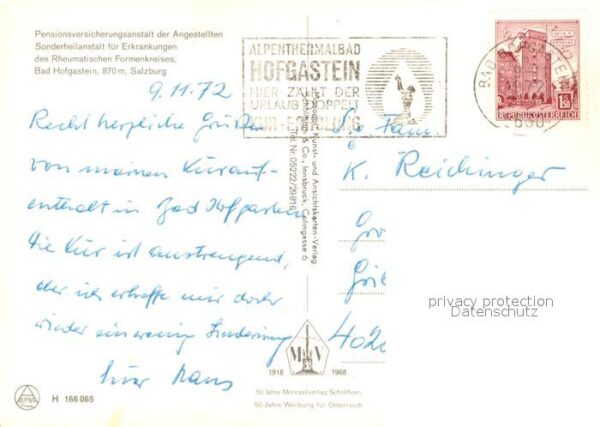 Pensionsversicherungsanstalt der Angestellten
Sonderheilanstalt für Erkrankungen
des Rheumatischen Formenkreises,
Bad Hofgastein, 870 m, Salzburg
9.11.72
Recht herzliche Grüße
von meinem Kurauf-
enthalt in Bad Hofgastein
Die Kur ist anstrengend,
aber ich erhoffe mir doch
wieder ein wenig Linderung
ALPENTHERMALBAD
HOFGASTEIN
HIER ZÄHLT DER
URLAUB DOPPELT
KUR-ERHOLUNG
BAD HOFGASTEIN
1.50
REPUBLIK ÖSTERREICH
Kunst- und Ansichtskarten-Verlag
& Co., Innsbruck,
Tel. 05222/29816
Fam.
K. Reichinger
402
privacy protection
Datenschutz
M V
1918 1968
50 Jahre Monopolverlag Schöllhorn
50 Jahre Werbung für Österreich
H 166 065